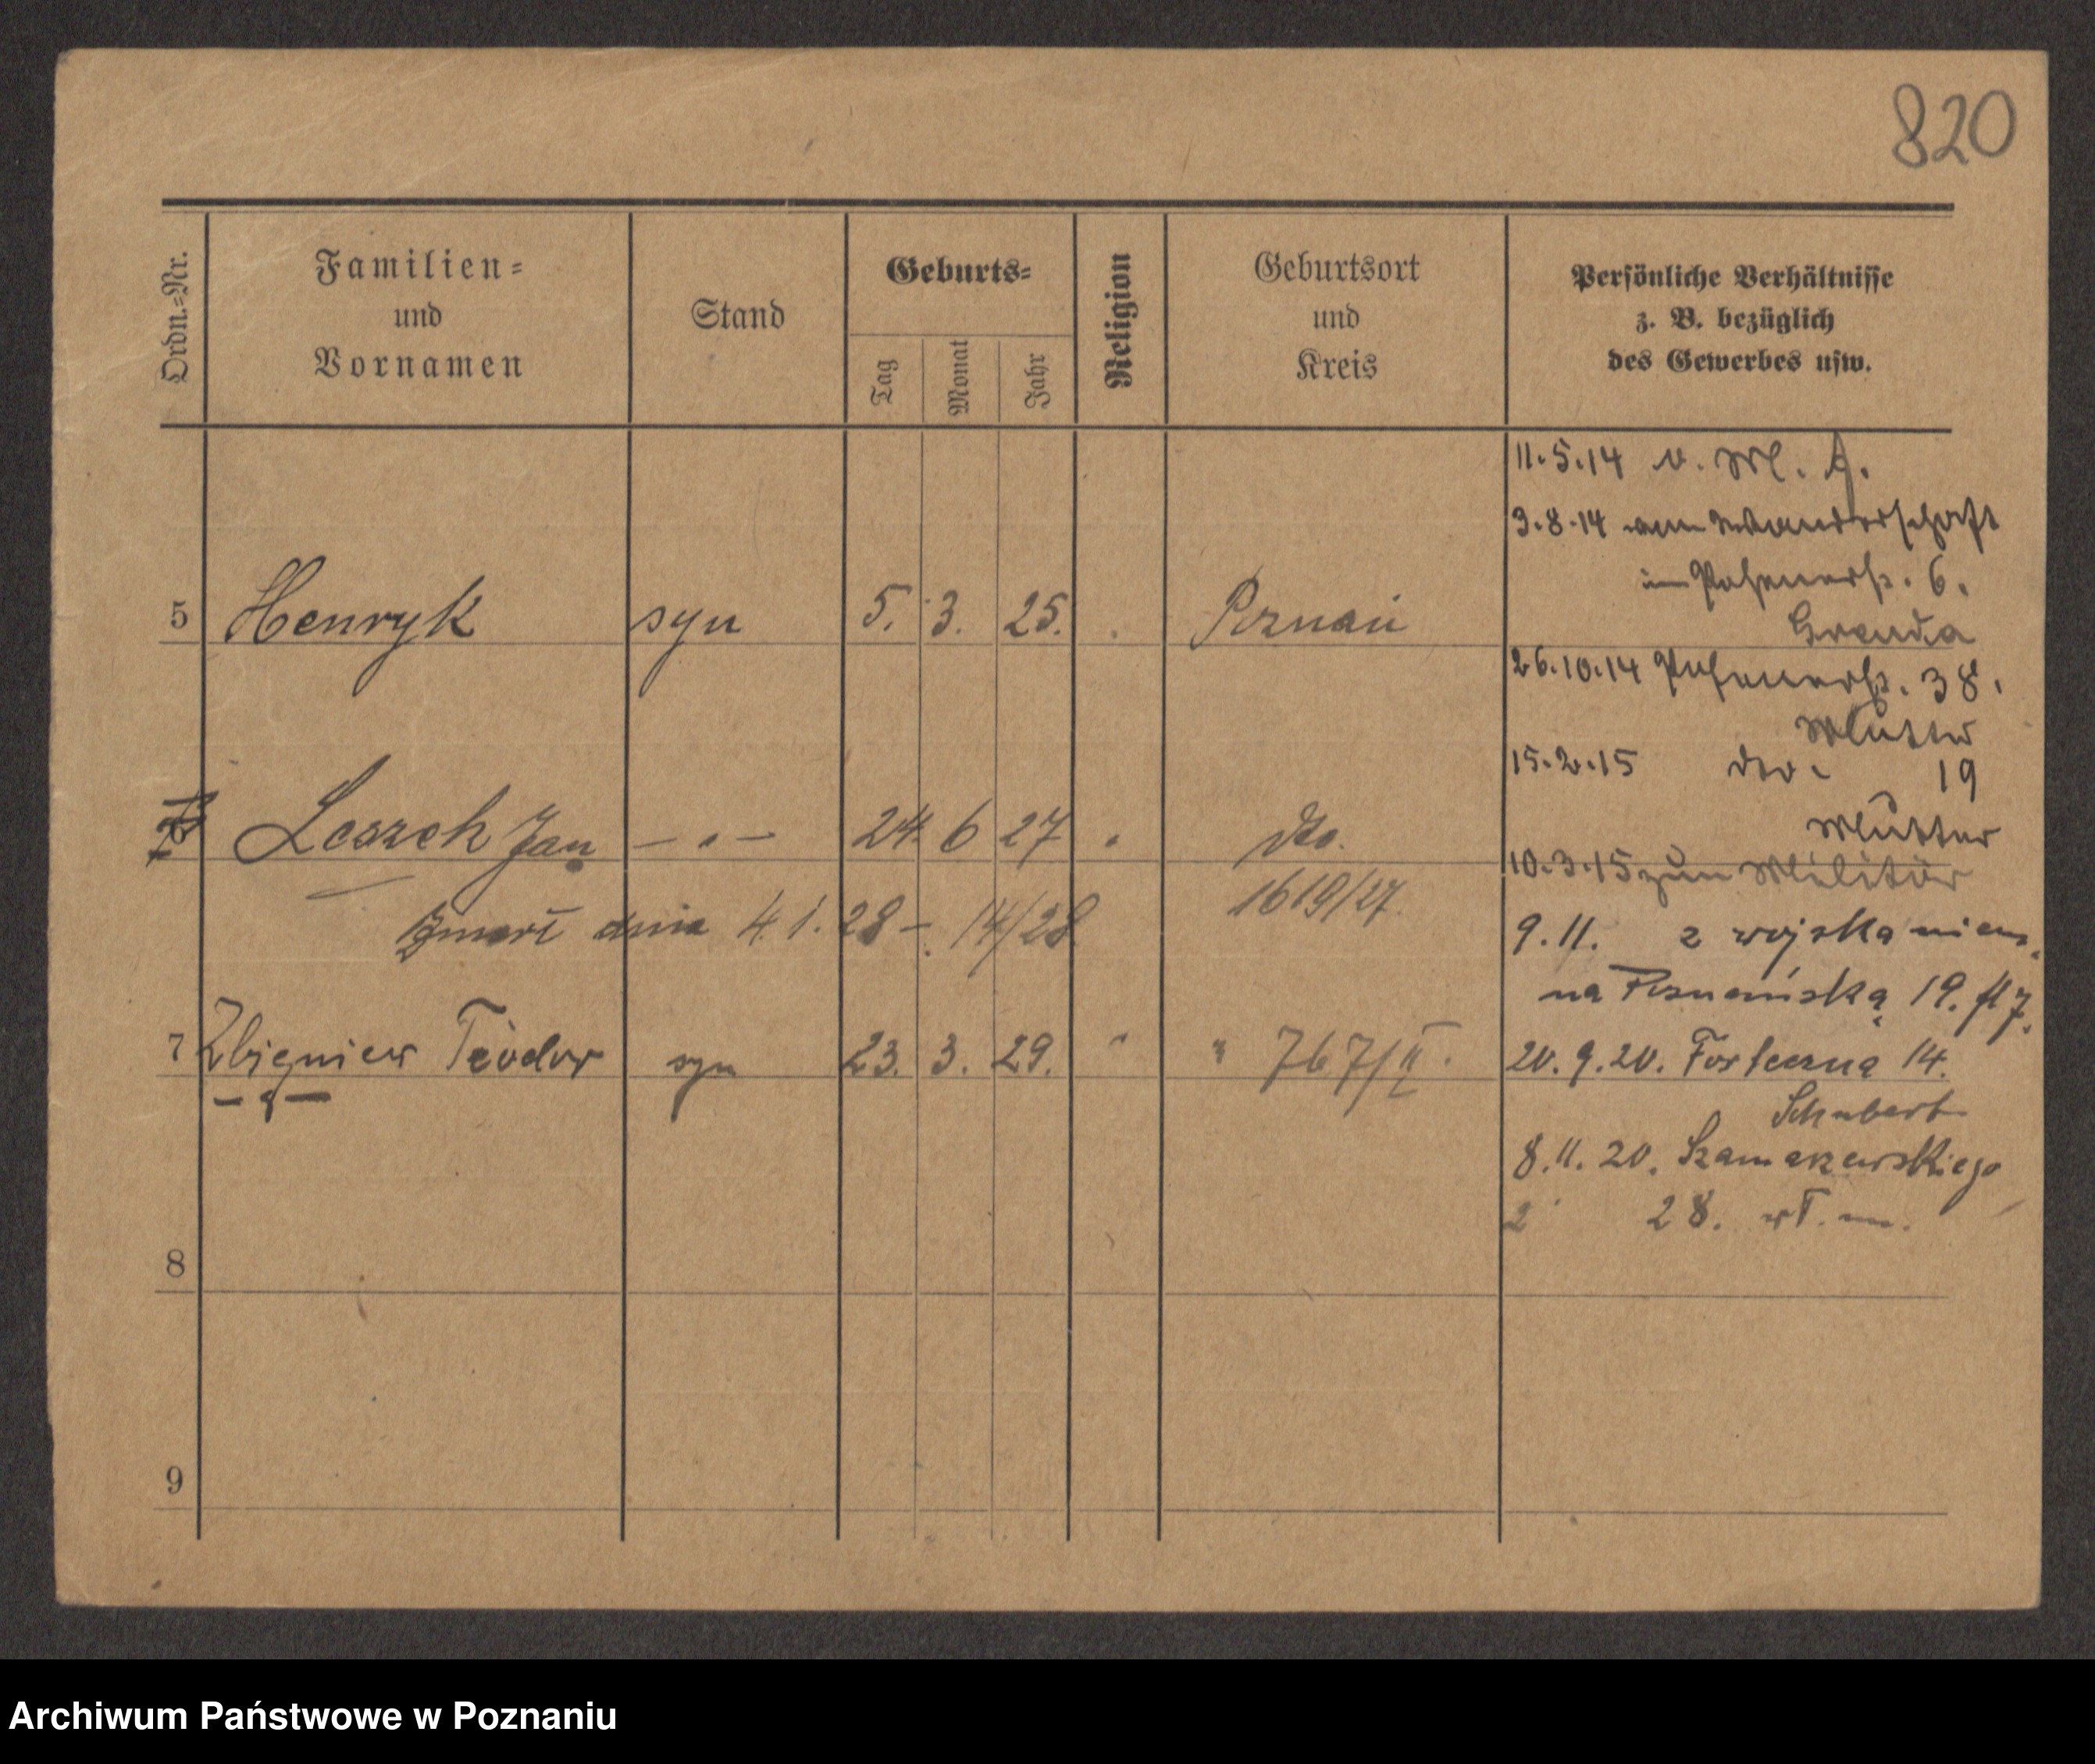 820
Ordn.-Nr.
Familien-
und
Vornamen
Stand
Geburts-
Tag
Monat
Jahr
Religion
Geburtsort
und
Kreis
Persönliche Verhältnisse
z. B. bezüglich
des Gewerbes usw.
11.5.14 v. M. A.
3.8.14 Wanderschaft
6.
5 Henryk syn 5. 3. 25. Poznań
Grenda
26.10.14 Posenerstr. 38.
Mutter
15.2.15 dto. 19
Mutter
Leszek Jan — " — 24. 6 27 " dto.
10.3.15 zum Militär
1619/27.
Zmarł dnia 4.1.28 – 14/28
9.11. z wojska niem.
na Poznańską 19.
7 Zbigniew Teodor syn 23. 3. 29. " " 767/II.
20.9.20. Forteczna 14.
Schubert
8.11.20. Szamarzewskiego
28. wł. m.
8
9
Archiwum Państwowe w Poznaniu